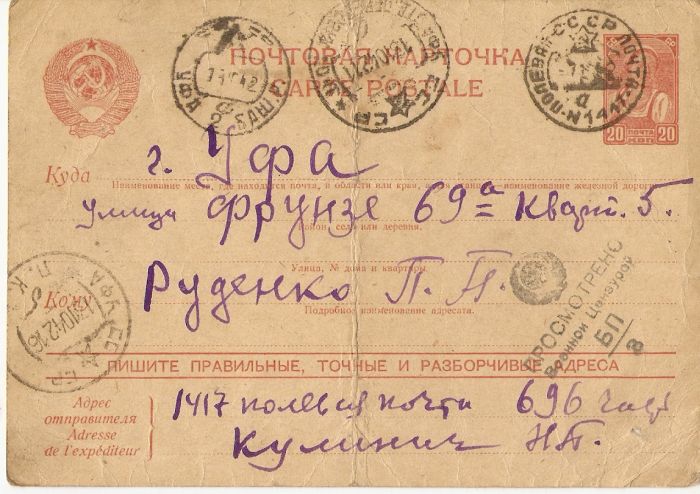 ПОЧТОВАЯ КАРТОЧКА
CARTE POSTALE
20 ПОЧТА 20
ПОЛЕВАЯ ПОЧТА
N 1417
Куда г. Уфа
Наименование места, где находится почта, и области или края, а для станции наименование железной дороги
улица Фрунзе 69а Кварт. 5.
Район, село или деревня.
Улица, № дома и квартиры.
Кому Руденко П. П.
Подробное наименование адресата.
ПРОСМОТРЕНО
Военной Цензурой
БП
8
ПИШИТЕ ПРАВИЛЬНЫЕ, ТОЧНЫЕ И РАЗБОРЧИВЫЕ АДРЕСА
Адрес
отправителя
Adresse
de l'expéditeur
1417 полевая почта 696 часть
Кулинич Н.П.